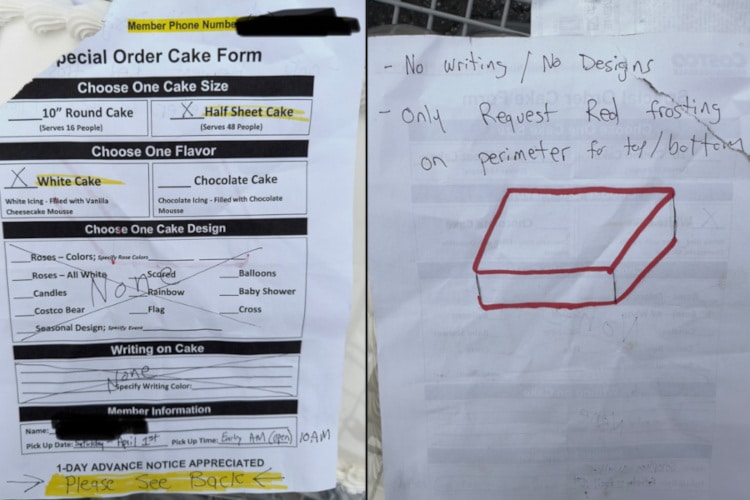 Member Phone Numbe
pecial Order Cake Form
Choose One Cake Size
___10" Round Cake
(Serves 16 People)
X Half Sheet Cake
(Serves 48 People)
Choose One Flavor
X White Cake
White Icing - Filled with Vanilla
Cheesecake Mousse
____ Chocolate Cake
Chocolate Icing - Filled with Chocolate
Mousse
Choose One Cake Design
___Roses – Colors; Specify Rose Colors
___Roses – All White
___Scared
___Balloons
None
___Candles
___Rainbow
___Baby Shower
___Costco Bear
___Flag
___Cross
___Seasonal Design; Specify Event
Writing on Cake
None
Specify Writing Color:
Member Information
Name:
Pick Up Date: Saturday - April 1st Pick Up Time: Early AM (open) 10AM
1-DAY ADVANCE NOTICE APPRECIATED
Please See Back
- No writing / No Designs
- Only Request Red frosting
on perimeter for top/bottom